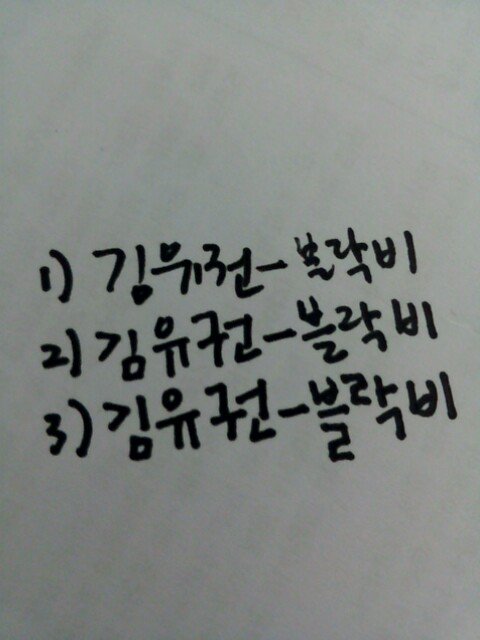 1) 김유권-블락비
2) 김유권-블락비
3) 김유권-블락비